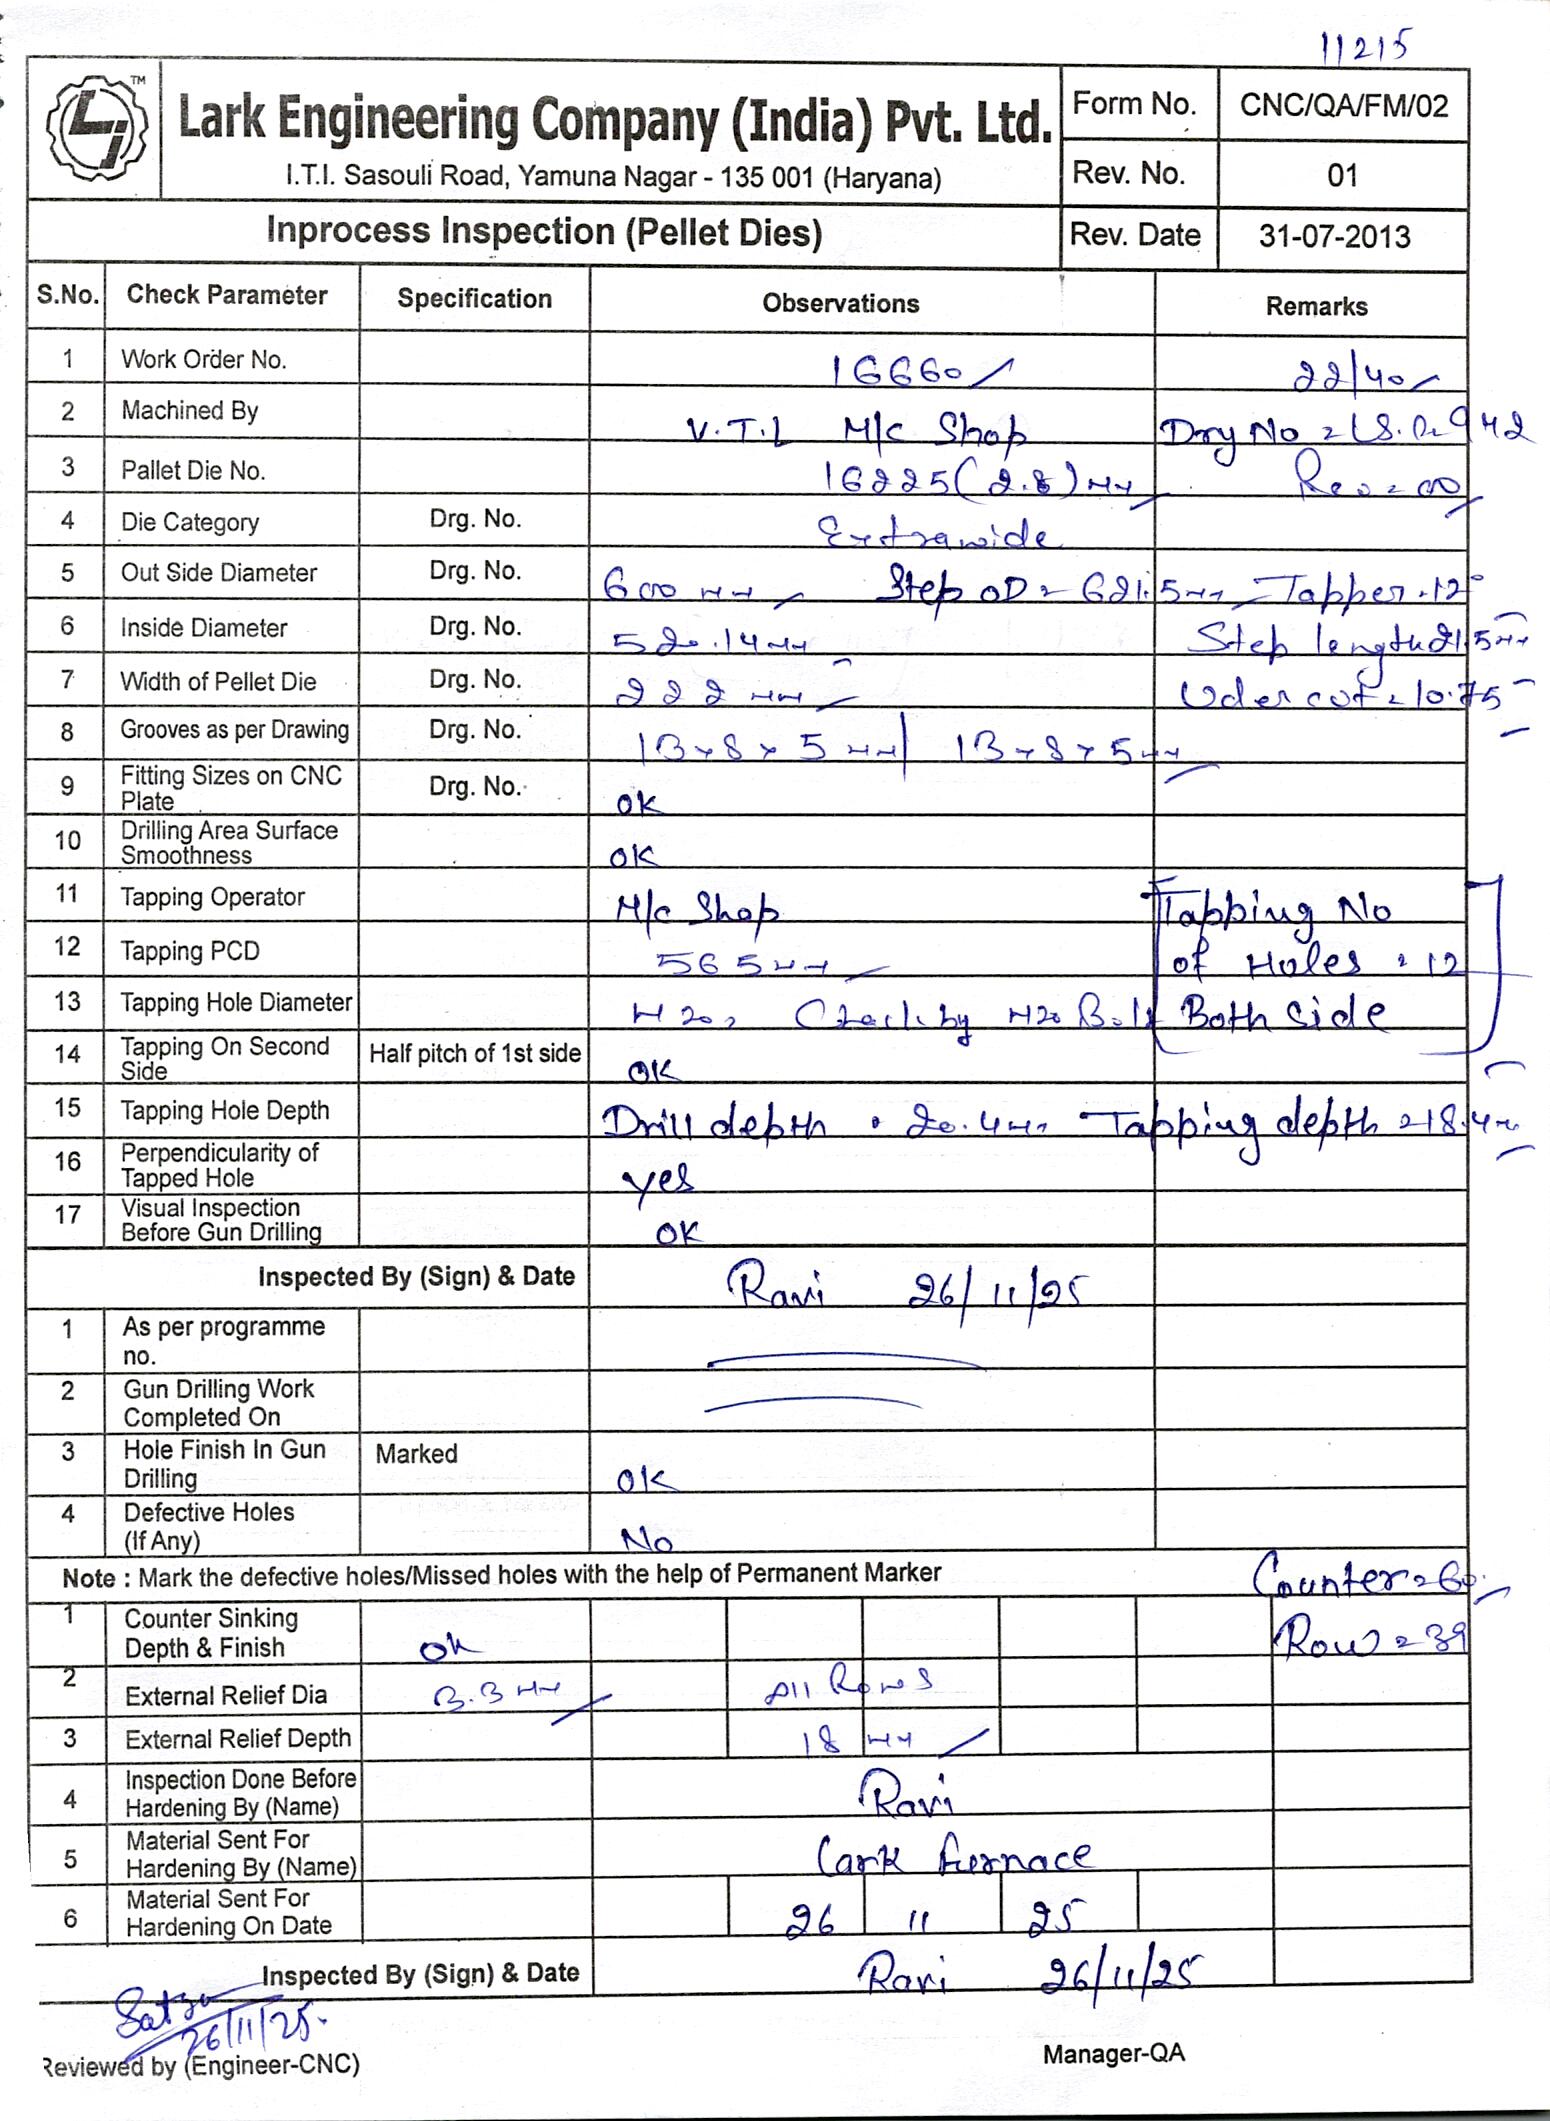 11215
TM
Lark Engineering Company (India) Pvt. Ltd.
I.T.I. Sasouli Road, Yamuna Nagar - 135 001 (Haryana)
Form No. CNC/QA/FM/02
Rev. No. 01
Inprocess Inspection (Pellet Dies) Rev. Date 31-07-2013
S.No. Check Parameter Specification Observations Remarks
1 Work Order No. 16660 22/40
2 Machined By V.T.L M/c Shop Drg No = 942
3 Pallet Die No. 16225 (2.8) mm Rev = 00
4 Die Category Drg. No. Extrawide
5 Out Side Diameter Drg. No. 600 mm Step OD = 621.5mm Tapper . 12°
6 Inside Diameter Drg. No. 520.14mm Step length 21.5mm
7 Width of Pellet Die Drg. No. 222 mm Uder cut = 10.75
8 Grooves as per Drawing Drg. No. 13 x 8 x 5 mm | 13 x 8 x 5 mm
9 Fitting Sizes on CNC Plate Drg. No. OK
10 Drilling Area Surface Smoothness OK
11 Tapping Operator M/c Shop Tapping No
12 Tapping PCD 565mm of Holes = 12
13 Tapping Hole Diameter M20, Check by M20 Bolt Both Side
14 Tapping On Second Side Half pitch of 1st side OK
15 Tapping Hole Depth Drill depth = 20.4mm Tapping depth = 18.4m
16 Perpendicularity of Tapped Hole yes
17 Visual Inspection Before Gun Drilling OK
Inspected By (Sign) & Date Ravi 26/11/25
1 As per programme no.
2 Gun Drilling Work Completed On
3 Hole Finish In Gun Drilling Marked OK
4 Defective Holes (If Any) No
Note : Mark the defective holes/Missed holes with the help of Permanent Marker Counter = 60.
1 Counter Sinking Depth & Finish Ok Row = 39
2 External Relief Dia 3.3 mm All Rows
3 External Relief Depth 18 mm
4 Inspection Done Before Hardening By (Name) Ravi
5 Material Sent For Hardening By (Name) Lark Furnace
6 Material Sent For Hardening On Date 26 11 25
Inspected By (Sign) & Date Ravi 26/11/25
26/11/25.
Reviewed by (Engineer-CNC) Manager-QA